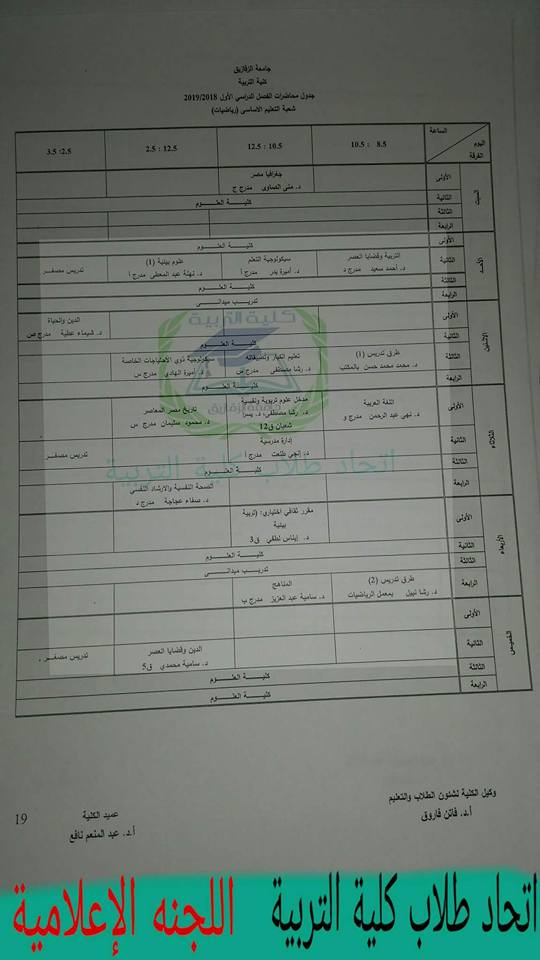 جامعة الزقازيق
كلية التربية
جدول محاضرات الفصل الدراسي الأول 2019/2018
شعبة التعليم الاساسى (رياضيات)
الساعة
اليوم
الفرقة
8.5 : 10.5
10.5 : 12.5
12.5 : 2.5
2.5 : 3.5
السبت
الأولى
جغرافيا مصر
د. منى الصاوى مدرج ج
الثانية
كليـــة العلـــوم
الثالثة
الرابعة
الأحد
الأولى
كليـــة العلـــوم
الثانية
التربية وقضايا العصر
د. أحمد سعيد مدرج د
سيكولوجية التعلم
د. أميرة بدر مدرج أ
علوم بيئية (1)
د. نهلة عبد المعطى مدرج أ
تدريس مصغر
الثالثة
كليـــة العلـــوم
الرابعة
تدريـــب ميدانـــى
الاثنين
الأولى
الدين والحياة
د. شيماء عطية مدرج ص
الثانية
كليـــة العلـــوم
الثالثة
طرق تدريس (1)
د. محمد محمد حسن بالمكتب
د. رشا مصطفى مدرج س
سيكولوجية ذوي الاحتياجات الخاصة
د. أميرة الهادي مدرج س
الرابعة
كليـــة العلـــوم
الثلاثاء
الأولى
اللغة العربية
د. نهى عبد الرحمن مدرج و
مدخل علوم تربوية ونفسية
د. رشا مصطفى، د. يسرا
شعبان ق12
تاريخ مصر المعاصر
د. محمود سليمان مدرج س
الثانية
إدارة مدرسية
د. إنجي طلعت مدرج أ
تدريس مصغر
الثالثة
كليـــة العلـــوم
الرابعة
الصحة النفسية والارشاد النفسي
د. صفاء عجاجة مدرج د
الأربعاء
الأولى
مقرر ثقافي اختياري: (تربية
بيئية
د. إيناس لطفي ق3
الثانية
كليـــة العلـــوم
الثالثة
تدريـــب ميدانـــى
الرابعة
طرق تدريس (2)
د. رشا نبيل بمعمل الرياضيات
المناهج
د. سامية عبد العزيز مدرج ب
الخميس
الأولى
الثانية
الدين وقضايا العصر
د. سامية محمدي ق5
تدريس مصغر .
الثالثة
كليـــة العلـــوم
الرابعة
كليـــة العلـــوم
كلية التربية
جامعة الزقازيق
اتحاد طلاب كلية التربية
وكيل الكلية لشئون الطلاب والتعليم
أ.د. فاتن فاروق
عميد الكلية
أ.د. عبد المنعم نافع
19
اتحاد طلاب كلية التربية اللجنه الإعلامية